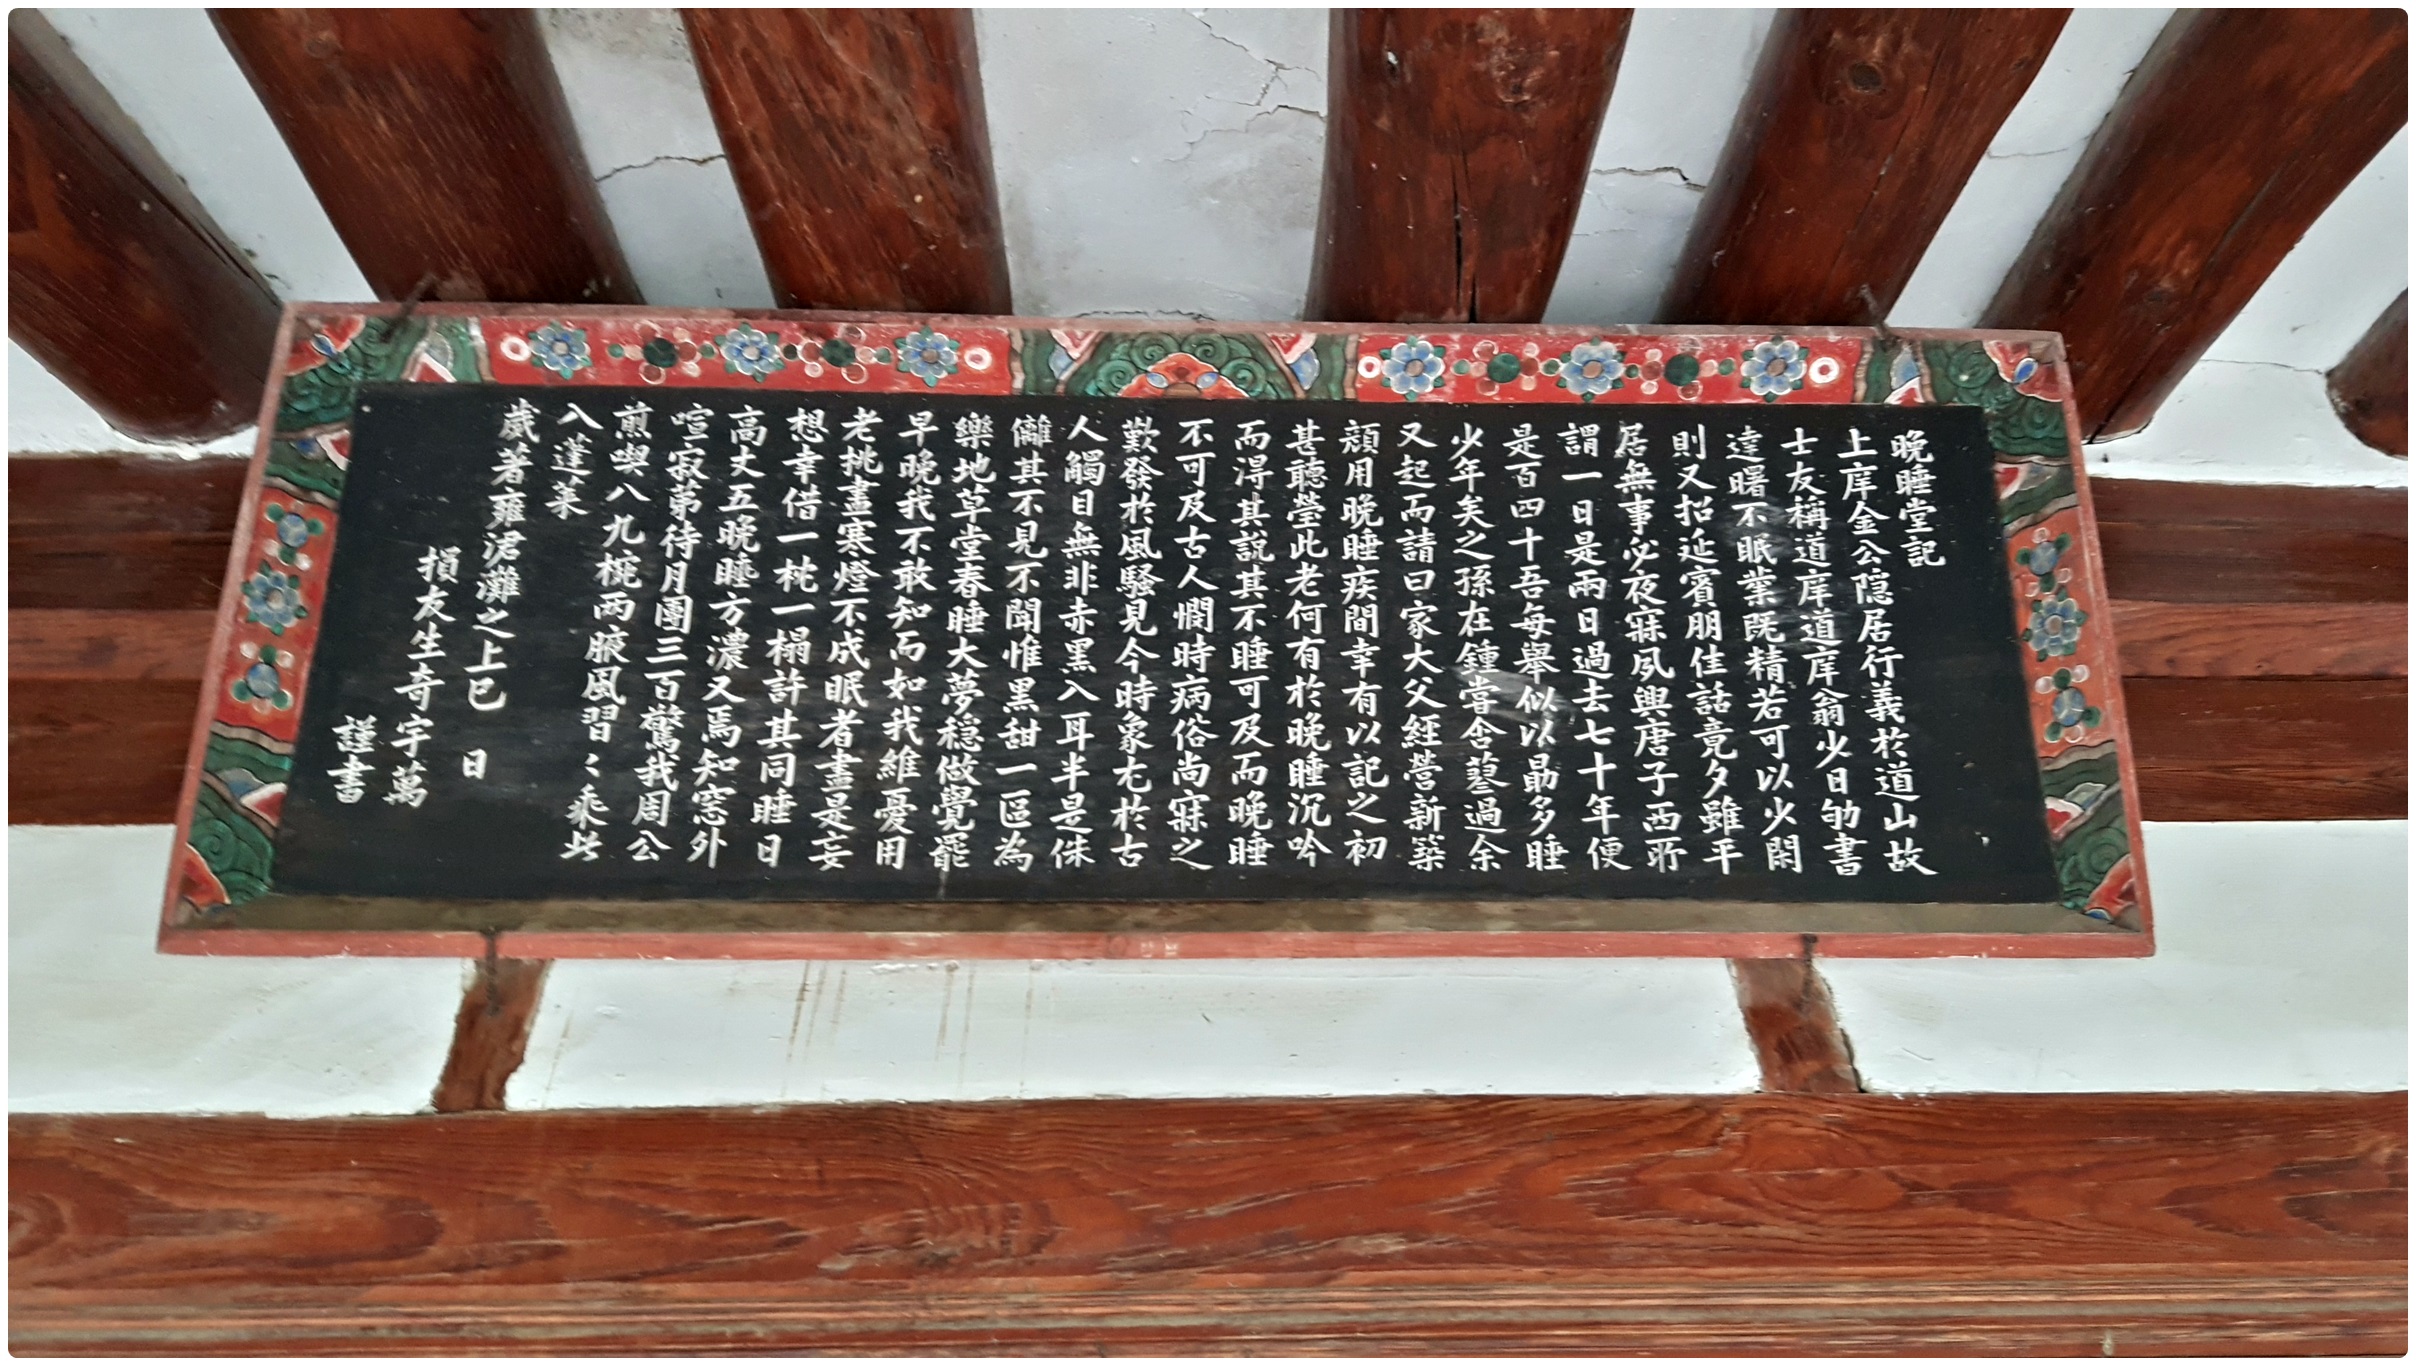 晩睡堂記
上庠金公隐居行義於道山故
士友稱道庠道庠翁少日劬書
達曙不眠業既精若可以少閑
則又招延賓朋佳話竟夕雖平
居無事必夜寐夙興唐子西所
謂一日是兩日過去七十年便
是百四十吾每舉似以勗多睡
少年矣之孫在鍾嘗舍蓽過余
又起而請曰家大父經營新築
顔用晩睡疾間幸有以記之初
甚聽瑩此老何有於晩睡沉吟
而淂其說其不睡可及而晩睡
不可及古人憫時病俗尚寐之
歎發於風騷見今時象尤於古
人觸目無非赤黑入耳半是侏
儺其不見不聞惟黑甜一區為
樂地草堂春睡大夢穏做覺罷
早晩我不敢知而如我維憂用
老挑盡寒燈不成眠者盡是妄
想幸借一枕一榻許其同睡日
高丈五晩睡方濃又焉知窓外
喧寂苐待月團三百驚我周公
煎喫八九椀兩腋風習〻乘此
入蓬莱
歲著雍涒灘之上巳　日
損友生奇宇萬
謹書